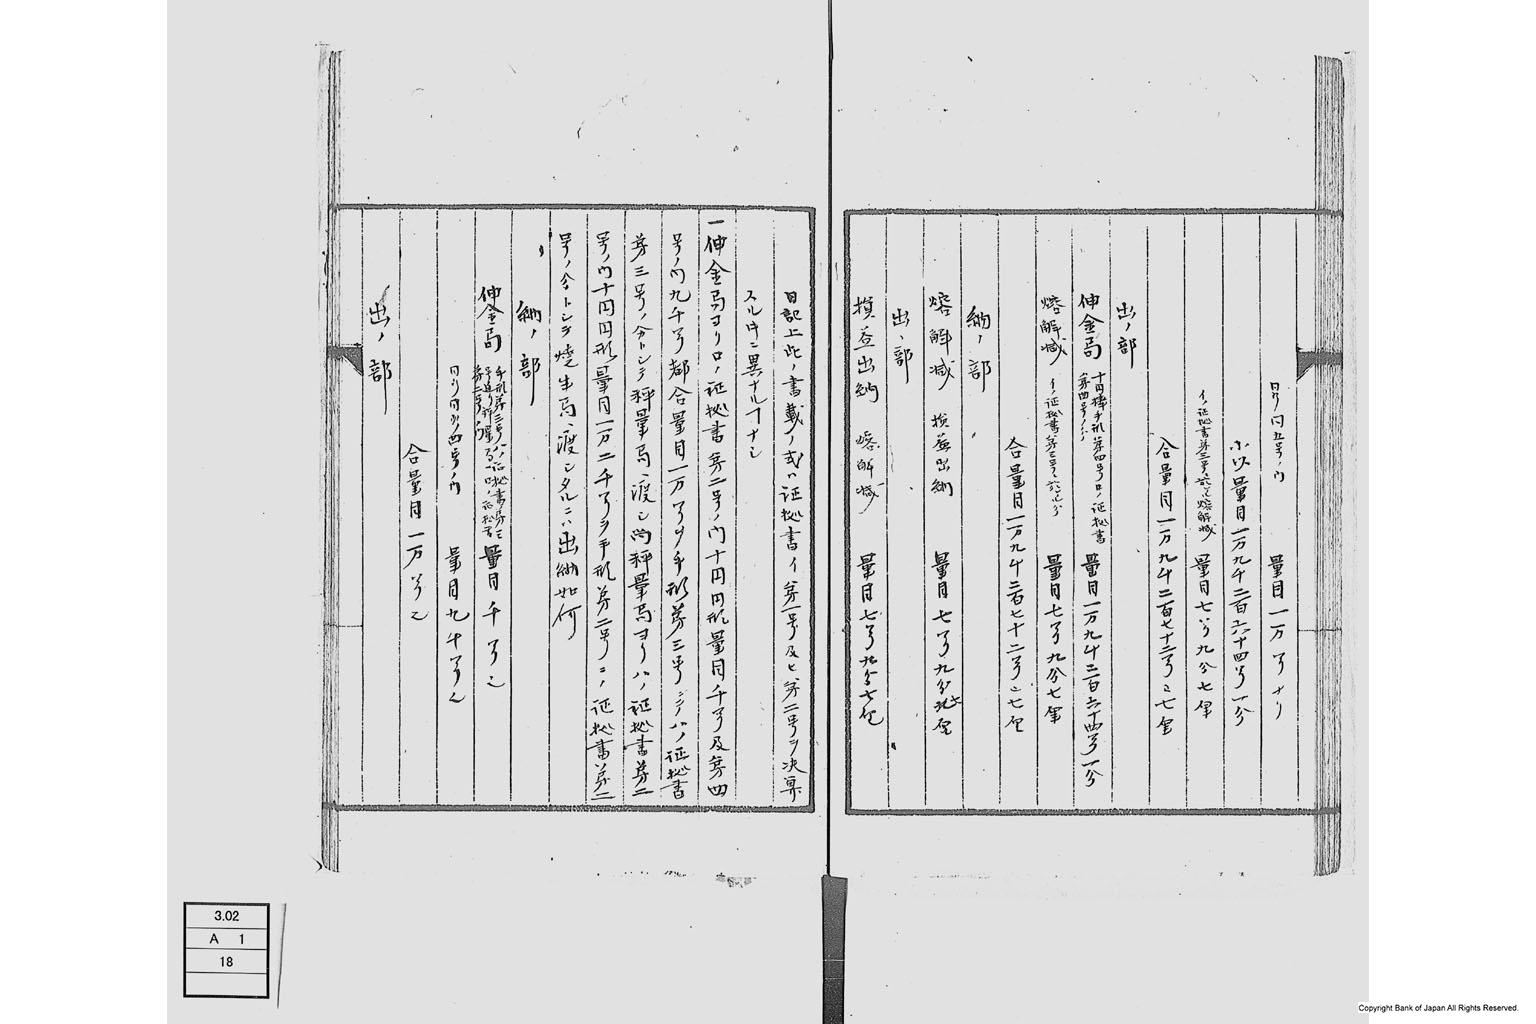 同 同五号ノ内 量目一万〃ナリ
小以量目一万九千二百六十四〃一分
イノ証拠書第三号 熔解減 量目七〃九分七厘
合量目一万九千二百七十二〃〇七厘
出ノ部
伸金局 十円棒手形第四号ロノ証拠書第四号 量目一万九千二百六十四〃一分
熔解減 イノ証拠書第三号 量目七〃九分七厘
合量目一万九千二百七十二〃〇七厘
納ノ部
熔解減 損益出納 量目七〃九分七厘
出ノ部
損益出納 熔解減 量目七〃九分七厘
日記上此ノ書載ノ式ハ証拠書イ第一号及ヒ第二号ヲ決算
スル件ニ異ナルコナシ
一伸金局ヨリロノ証拠書第二号ノ内十円円形量目千〃及第四
号ノ内九千〃都合量目一万〃ヲ手形第三号ニテハノ証拠書
第三号ノ分トシテ秤量局ヘ渡シ尚秤量局ヨリハノ証拠書第二
号ノ内十円円形量目一万二千〃ヲ手形第二号ニノ証拠書第二
号ノ分トシテ焼生局ヘ渡シタルニハ出納如何
納ノ部
伸金局 手形第三号ハノ証拠書第三 量目千〃
同 四号ノ内 量目九千〃
合量目一万〃
出ノ部
3.02
A 1
18
Copyright Bank of Japan All Rights Reserved.